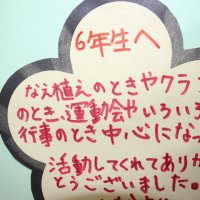 6年生へ
なえ植えのときやクラ
のとき、運動会やいろいろ
行事のとき中心になっ
活動してくれてありが
とうございました。